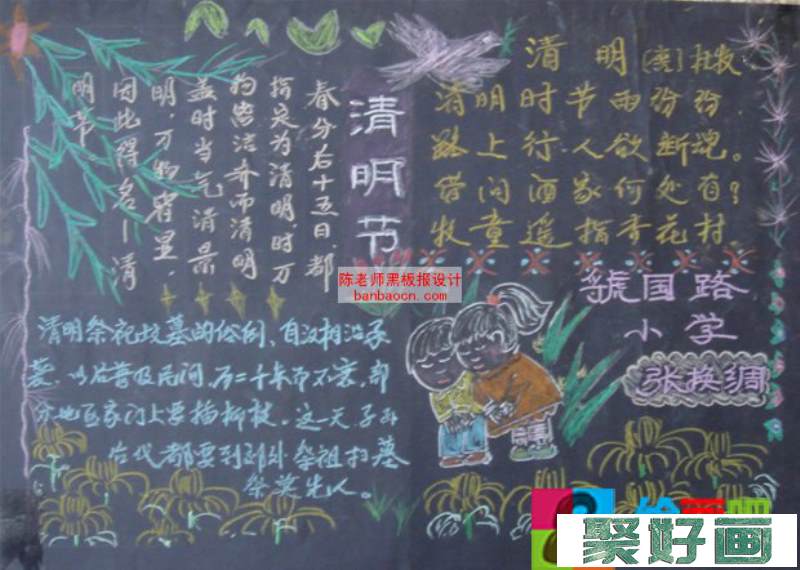 清明 [唐] 杜牧
清明时节雨纷纷
路上行人欲断魂。
借问酒家何处有?
牧童遥指杏花村
清明节
春分后十五日,都
指定为清明,时万
物洁齐而清明
盖时当气清景
明,万物皆显,
因此得名—清
明节
陈老师黑板报设计
banbaocn.com
虢国路
小学
张换绸
清明祭祀坟墓的俗例,自汉相沿承
袭,以后普及民间,二千年而不衰,部
分地区家门上要插柳枝。这一天子孙
后代都要到郊外祭祖扫墓
祭奠先人。
聚好画